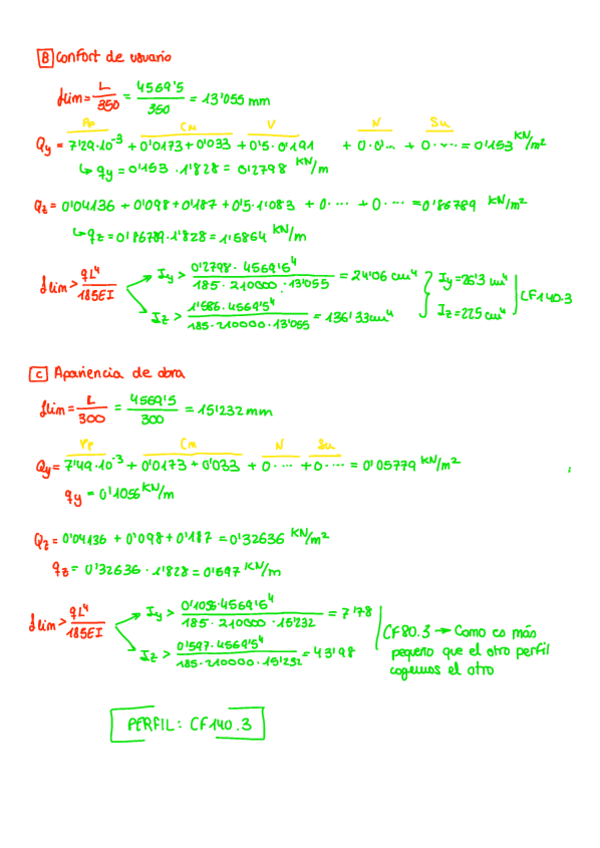 B Confort de usuario
flim = L/350 = 4569'5/350 = 13'055 mm
Pp Cm V N Su
Qy = 7'29·10^-3 + 0'0173 + 0'033 + 0'5 · 0'191 + 0·0'... + 0·... = 0'153 KN/m²
↳ qy = 0'153 · 1'828 = 0'2798 KN/m
Qz = 0'04136 + 0'098 + 0'187 + 0'5·1'083 + 0·... + 0·... = 0'86789 KN/m²
↳ qz = 0'86789·1'828 = 1'5864 KN/m
flim > qL⁴/185EI → Iy > 0'2798·4569'5⁴/185·210000·13'055 = 24'06 cm⁴ } Iy = 26'3 cm⁴ | CF140.3
→ Iz > 1'586·4569'5⁴/185·210000·13'055 = 136'33 cm⁴ Iz = 225 cm⁴
C Apariencia de obra
flim = L/300 = 4569'5/300 = 15'232 mm
Pp Cm N Su
Qy = 7'49·10^-3 + 0'0173 + 0'033 + 0·... + 0·... = 0'05779 KN/m²
qy = 0'1056 KN/m
Qz = 0'04136 + 0'098 + 0'187 = 0'32636 KN/m²
qz = 0'32636 · 1'828 = 0'597 KN/m
flim > qL⁴/185EI → Iy > 0'1056·4569'5⁴/185·210000·15'232 = 7'78
→ Iz > 0'597·4569'5⁴/185·210000·15'232 = 43'98
CF80.3 → Como es más
pequeno que el otro perfil
cogemos el otro
PERFIL: CF140.3